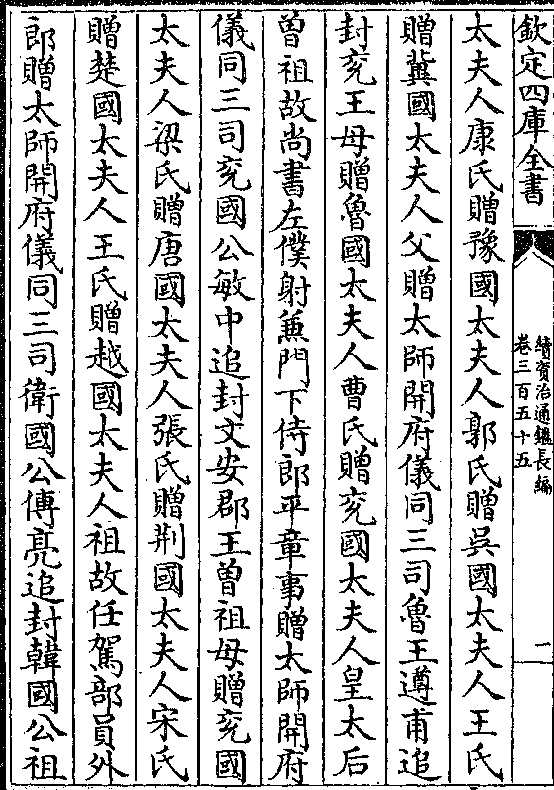 欽定四庫全書
續資治通鑑長編
卷三百五十五
二
太夫人康氏贈豫國太夫人郭氏贈吳國太夫人王氏
贈冀國太夫人父贈太師開府儀同三司魯王遵甫追
封兖王母贈魯國太夫人曹氏贈兖國太夫人皇太后
曾祖故尚書左僕射兼門下侍郎平章事贈太師開府
儀同三司兖國公敏中追封文安郡王曾祖母贈兖國
太夫人梁氏贈唐國太夫人張氏贈荆國太夫人宋氏
贈楚國太夫人王氏贈越國太夫人祖故任駕部員外
郎贈太師開府儀同三司衛國公傅亮追封韓國公祖